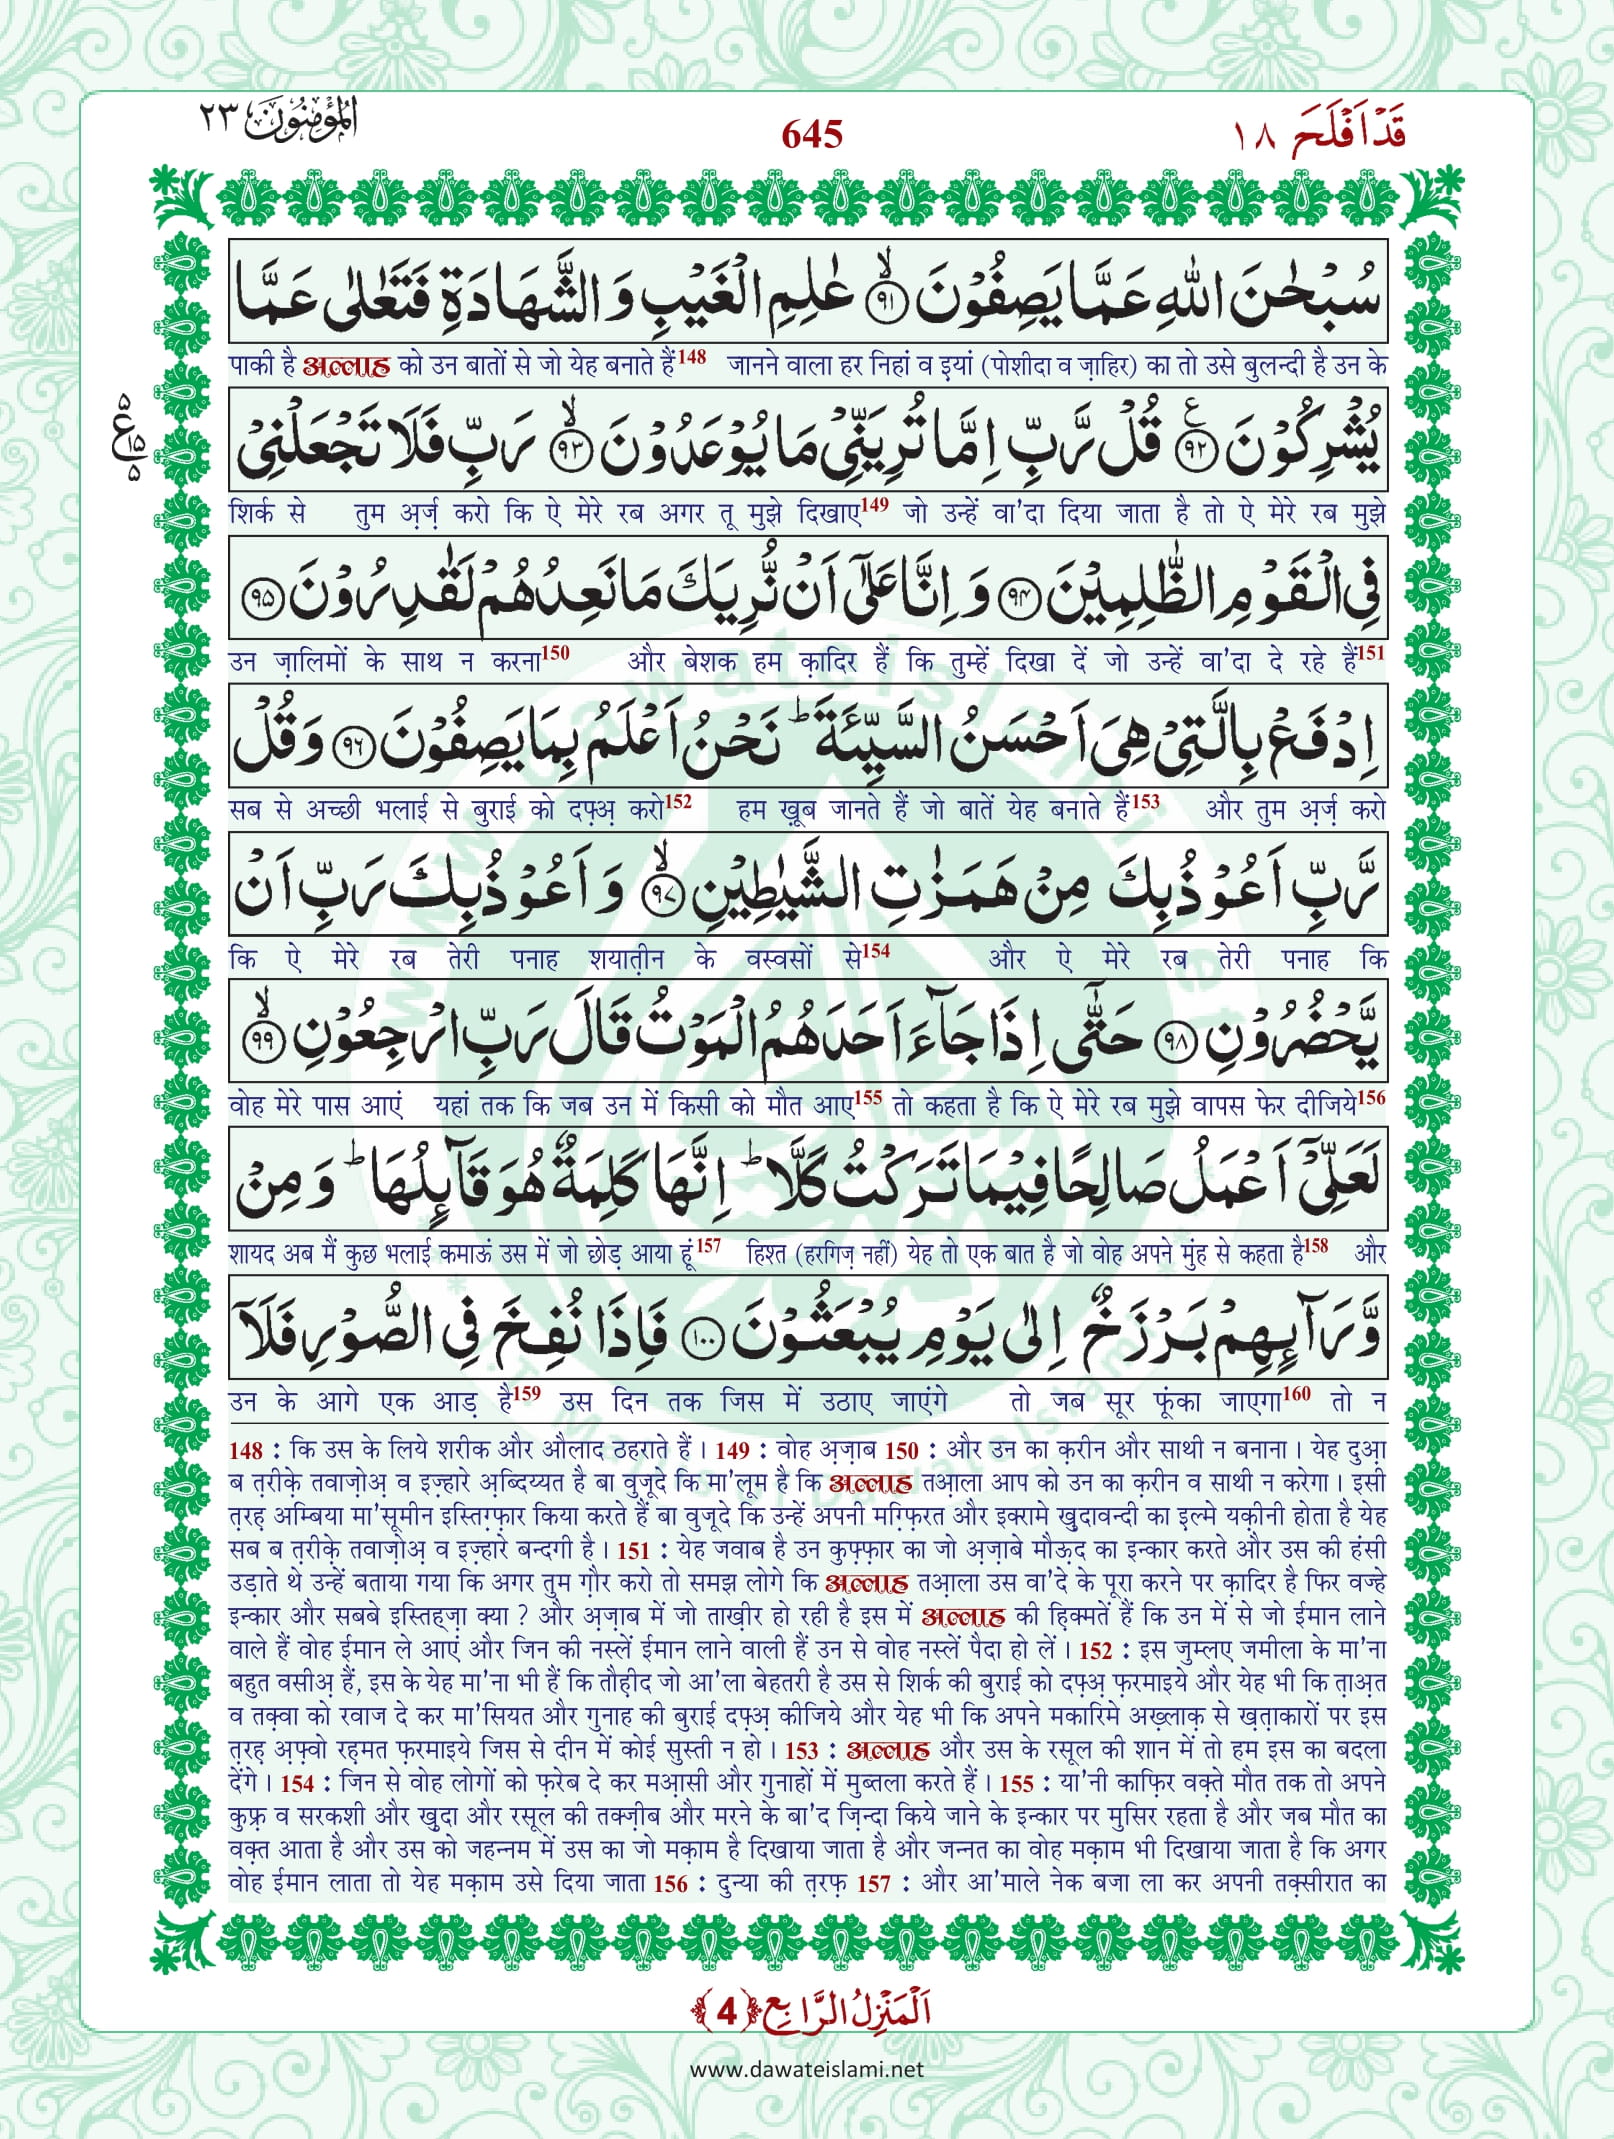 قَدْ اَفْلَحَ ١٨
645
اَلْمُؤْمِنُوْنَ ٢٣
سُبْحٰنَ اللّٰهِ عَمَّا یَصِفُوْنَۙ ﴿۹۱﴾ عٰلِمِ الْغَیْبِ وَ الشَّهَادَةِ فَتَعٰلٰى عَمَّا
पाकी है अल्लाह को उन बातों से जो येह बनाते हैं148 जानने वाला हर निहां व इयां (पोशीदा व ज़ाहिर) का तो उसे बुलन्दी है उन के
یُشْرِكُوْنَ۠ ﴿۹۲﴾ قُلْ رَّبِّ اِمَّا تُرِیَنِّیْ مَا یُوْعَدُوْنَۙ ﴿۹۳﴾ رَبِّ فَلَا تَجْعَلْنِیْ
ع ۵ ۱۵ ۵
शिर्क से तुम अ़र्ज़ करो कि ऐ मेरे रब अगर तू मुझे दिखाए149 जो उन्हें वा'दा दिया जाता है तो ऐ मेरे रब मुझे
فِی الْقَوْمِ الظّٰلِمِیْنَ ﴿۹۴﴾ وَ اِنَّا عَلٰۤى اَنْ نُّرِیَكَ مَا نَعِدُهُمْ لَقٰدِرُوْنَ ﴿۹۵﴾
उन ज़ालिमों के साथ न करना150 और बेशक हम क़ादिर हैं कि तुम्हें दिखा दें जो उन्हें वा'दा दे रहे हैं151
اِدْفَعْ بِالَّتِیْ هِیَ اَحْسَنُ السَّیِّئَةَؕ نَحْنُ اَعْلَمُ بِمَا یَصِفُوْنَ ﴿۹۶﴾ وَ قُلْ
सब से अच्छी भलाई से बुराई को दफ़्अ़ करो152 हम ख़ूब जानते हैं जो बातें येह बनाते हैं153 और तुम अ़र्ज़ करो
رَّبِّ اَعُوْذُ بِكَ مِنْ هَمَزٰتِ الشَّیٰطِیْنِۙ ﴿۹۷﴾ وَ اَعُوْذُ بِكَ رَبِّ اَنْ
कि ऐ मेरे रब तेरी पनाह शयात़ीन के वस्वसों से154 और ऐ मेरे रब तेरी पनाह कि
یَّحْضُرُوْنِ ﴿۹۸﴾ حَتّٰۤى اِذَا جَآءَ اَحَدَهُمُ الْمَوْتُ قَالَ رَبِّ ارْجِعُوْنِۙ ﴿۹۹﴾
वोह मेरे पास आएं यहां तक कि जब उन में किसी को मौत आए155 तो कहता है कि ऐ मेरे रब मुझे वापस फेर दीजिये156
لَعَلِّیْۤ اَعْمَلُ صَالِحًا فِیْمَا تَرَكْتُ كَلَّاؕ اِنَّهَا كَلِمَةٌ هُوَ قَآىٕلُهَاؕ وَ مِنْ
शायद अब मैं कुछ भलाई कमाऊं उस में जो छोड़ आया हूं157 हिश्त (हरगिज़ नहीं) येह तो एक बात है जो वोह अपने मुंह से कहता है158 और
وَّرَآىٕهِمْ بَرْزَخٌ اِلٰى یَوْمِ یُبْعَثُوْنَ ﴿۱۰۰﴾ فَاِذَا نُفِخَ فِی الصُّوْرِ فَلَاۤ
उन के आगे एक आड़ है159 उस दिन तक जिस में उठाए जाएंगे तो जब सूर फूंका जाएगा160 तो न
148 : कि उस के लिये शरीक और औलाद ठहराते हैं । 149 : वोह अ़ज़ाब 150 : और उन का क़रीन और साथी न बनाना । येह दुआ़
ब त़रीक़े तवाज़ोअ़ व इज़्हारे अ़ब्दिय्यत है बा वुजूदे कि मा'लूम है कि अल्लाह तआ़ला आप को उन का क़रीन व साथी न करेगा । इसी
त़रह़ अम्बिया मा'सूमीन इस्तिग़्फ़ार किया करते हैं बा वुजूदे कि उन्हें अपनी मग़्फ़िरत और इक्रामे खुदावन्दी का इल्मे यक़ीनी होता है येह
सब ब त़रीक़े तवाज़ोअ़ व इज़्हारे बन्दगी है । 151 : येह जवाब है उन कुफ़्फ़ार का जो अ़ज़ाबे मौऊ़द का इन्कार करते और उस की हंसी
उड़ाते थे उन्हें बताया गया कि अगर तुम ग़ौर करो तो समझ लोगे कि अल्लाह तआ़ला उस वा'दे के पूरा करने पर क़ादिर है फिर वज्हे
इन्कार और सबबे इस्तिह्ज़ा क्या ? और अ़ज़ाब में जो ताख़ीर हो रही है इस में अल्लाह की ह़िक्मतें हैं कि उन में से जो ईमान लाने
वाले हैं वोह ईमान ले आएं और जिन की नस्लें ईमान लाने वाली हैं उन से वोह नस्लें पैदा हो लें । 152 : इस जुम्लए जमीला के मा'ना
बहुत वसीअ़ हैं, इस के येह मा'ना भी हैं कि तौह़ीद जो आ'ला बेहतरी है उस से शिर्क की बुराई को दफ़्अ़ फ़रमाइये और येह भी कि त़ाअ़त
व तक़्वा को रवाज दे कर मा'सियत और गुनाह की बुराई दफ़्अ़ कीजिये और येह भी कि अपने मकारिमे अख़्लाक़ से ख़त़ाकारों पर इस
त़रह़ अ़फ़्वो रह़मत फ़रमाइये जिस से दीन में कोई सुस्ती न हो । 153 : अल्लाह और उस के रसूल की शान में तो हम इस का बदला
देंगे । 154 : जिन से वोह लोगों को फ़रेब दे कर मआ़सी और गुनाहों में मुब्तला करते हैं । 155 : या'नी काफ़िर वक़्ते मौत तक तो अपने
कुफ़्र व सरकशी और खुदा और रसूल की तक्ज़ीब और मरने के बा'द ज़िन्दा किये जाने के इन्कार पर मुसिर रहता है और जब मौत का
वक़्त आता है और उस को जहन्नम में उस का जो मक़ाम है दिखाया जाता है और जन्नत का वोह मक़ाम भी दिखाया जाता है कि अगर
वोह ईमान लाता तो येह मक़ाम उसे दिया जाता 156 : दुन्या की त़रफ़ 157 : और आ'माले नेक बजा ला कर अपनी तक़्सीरात का
اَلْمَنْزِلُ الرَّابِع ﴿4﴾
www.dawateislami.net